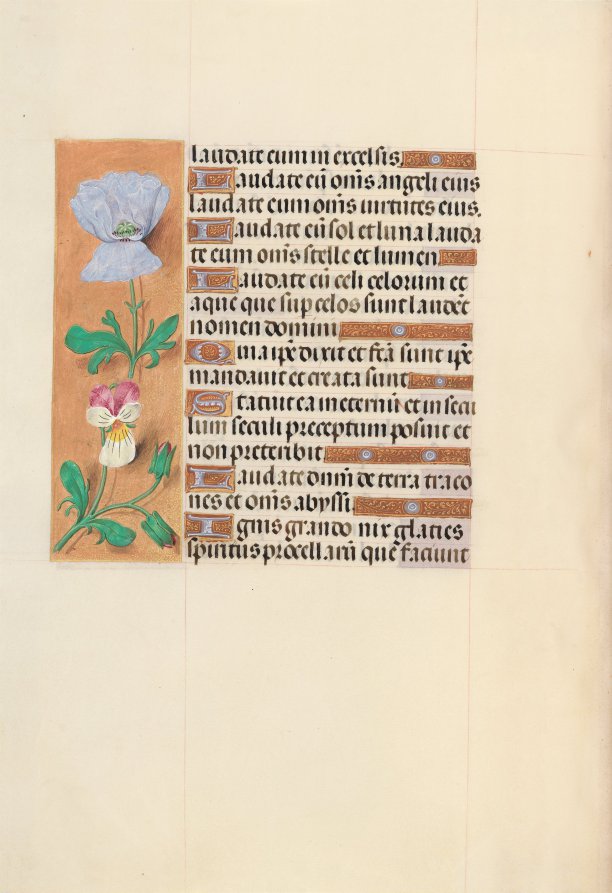 laudate eum in excelsis.
Laudate eū om̄s angeli eius
laudate eum om̄s uirtutes eius.
Laudate eū sol et luna lauda
te eum om̄s stelle et lumen.
Laudate eū celi celorum et
aque que sup celos sunt laudēt
nomen domini
Quia ip̄e dixit et fc̄a sunt ip̄e
mandauit et creata sunt
Statuit ea in eternū et in secu
lum seculi preceptum posuit et
non preteribit
Laudate dnm̄ de terra traco
nes et om̄s abyssi
Ignis grando nix glacies
spiritus procellarū que faciunt